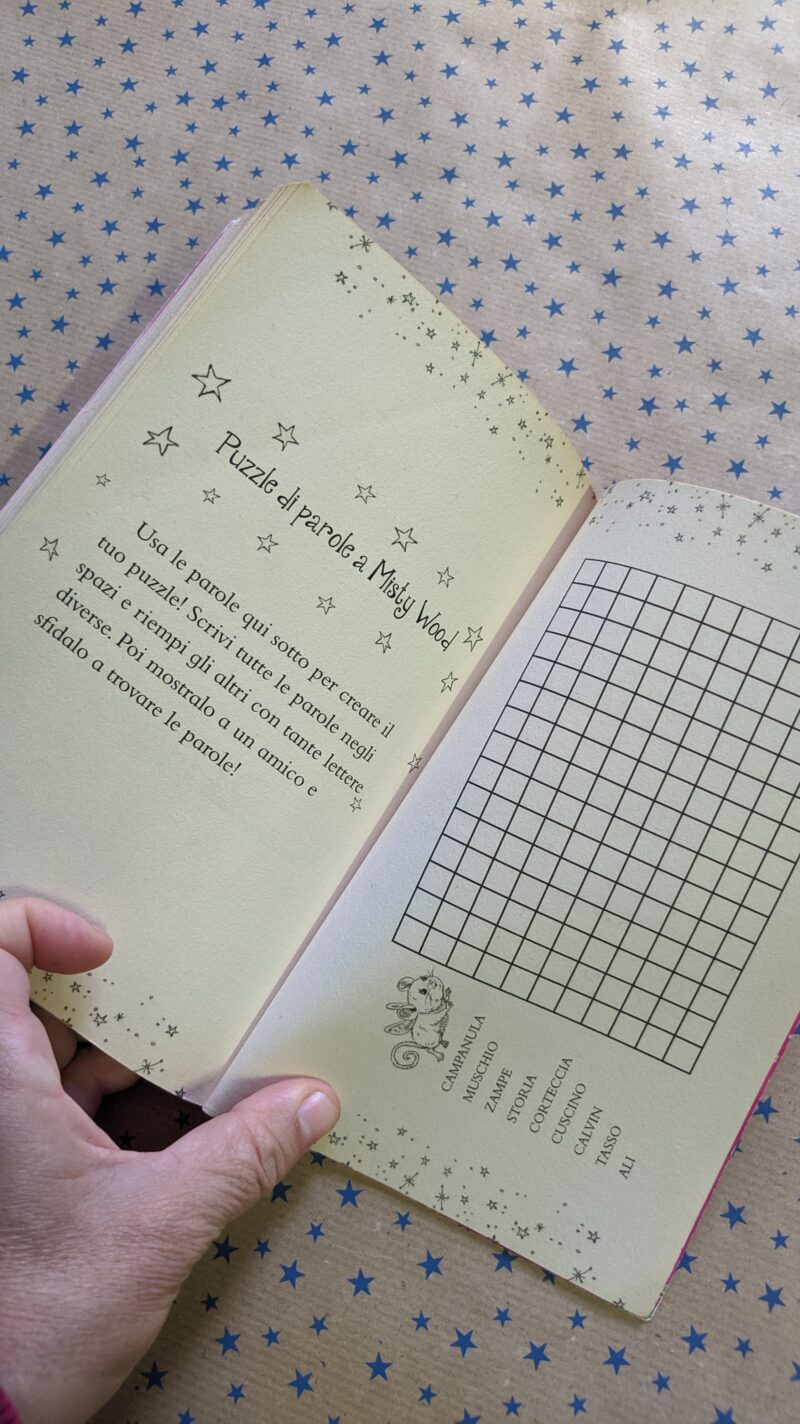 Puzzle di parole a Misty Wood
Usa le parole qui sotto per creare il
tuo puzzle! Scrivi tutte le parole negli
spazi e riempi gli altri con tante lettere
diverse. Poi mostralo a un amico e
sfidalo a trovare le parole!
CAMPANULA
MUSCHIO
ZAMPE
STORIA
CORTECCIA
CUSCINO
CALVIN
TASSO
ALI